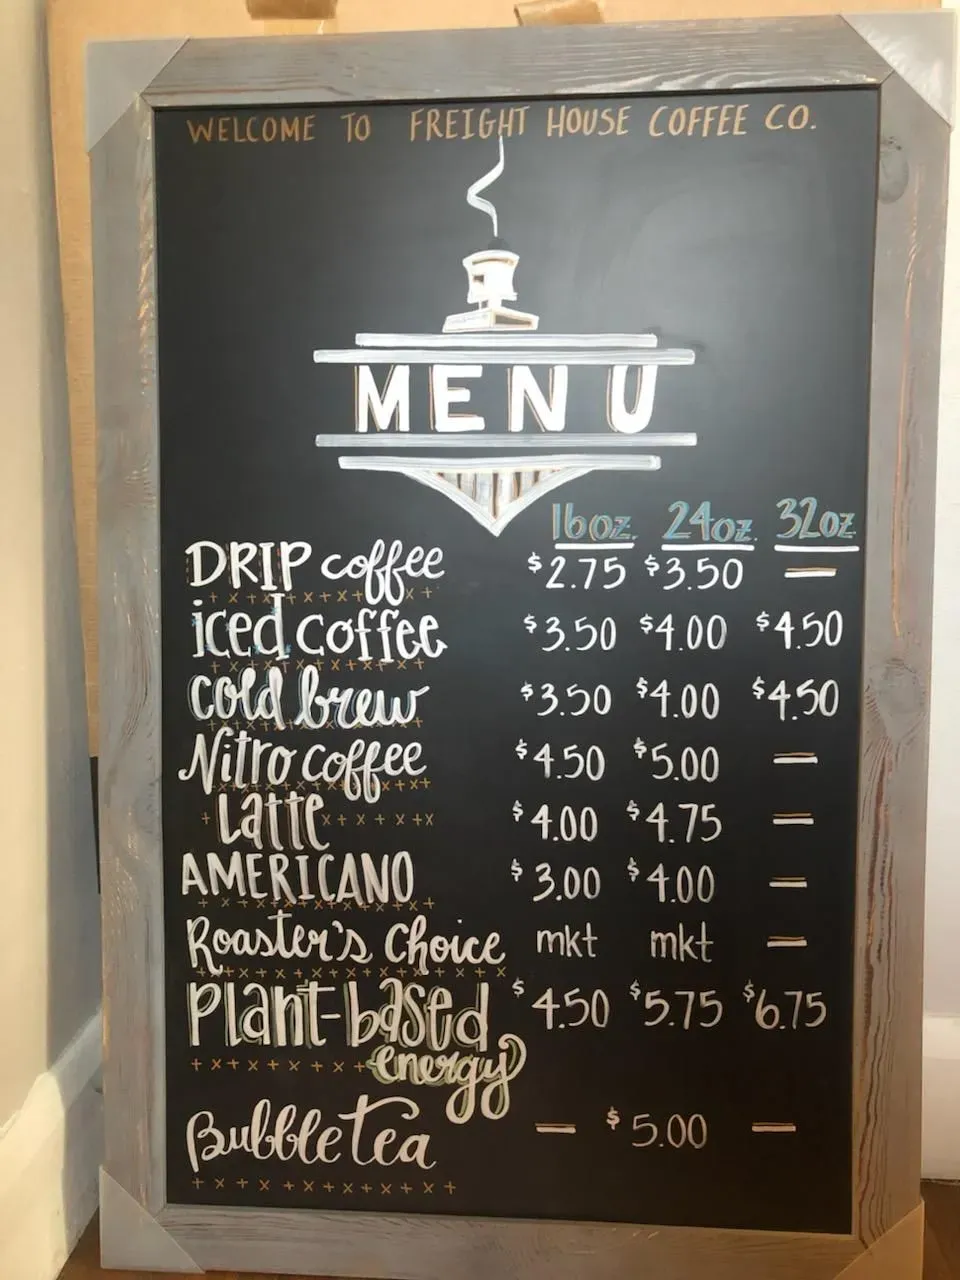 WELCOME TO FREIGHT HOUSE COFFEE CO.
MENU
16oz. 24oz. 32oz
DRIP coffee $2.75 $3.50 —
iced coffee $3.50 $4.00 $4.50
cold brew $3.50 $4.00 $4.50
Nitro coffee $4.50 $5.00 —
Latte $4.00 $4.75 —
AMERICANO $3.00 $4.00 —
Roaster's Choice mkt mkt —
Plant-based $4.50 $5.75 $6.75
energy
Bubble tea — $5.00 —